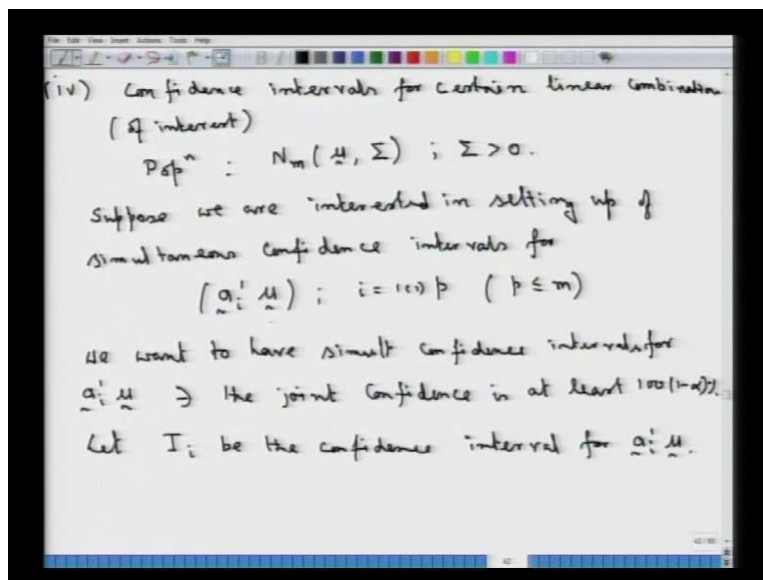 (iv) confidence intervals for certain linear combination
(of interest)
Popⁿ : N_m(μ, Σ) ; Σ > 0.
Suppose we are interested in setting up of
simultaneous confidence intervals for
(a_i' μ) ; i = 1(1)p (p ≤ m)
We want to have simult confidence intervals for
a_i' μ ∋ the joint confidence is at least 100(1-α)%.
Let I_i be the confidence interval for a_i' μ.